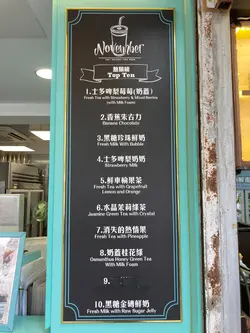 November
熱爆榜
Top Ten
1.士多啤梨莓莓(奶蓋)
Fresh Tea with Strawberry & Mixed Berries
(with Milk Foam)
2.香蕉朱古力
Banana Chocolate
3.黑糖珍珠鮮奶
Fresh Milk With Bubble
4.士多啤梨奶
Strawberry Milk
5.鮮車輪果茶
Fresh Tea with Grapefruit
Lemon and Orange
6.水晶茉莉綠茶
Jasmine Green Tea with Crystal
7.消失的熱情果
Fresh Tea with Pineapple
8.奶蓋桂花綠
Osmanthus Honey Green Tea
With Milk Foam
9.
10.黑糖金磚鮮奶
Fresh Milk with Raw Sugar Jelly